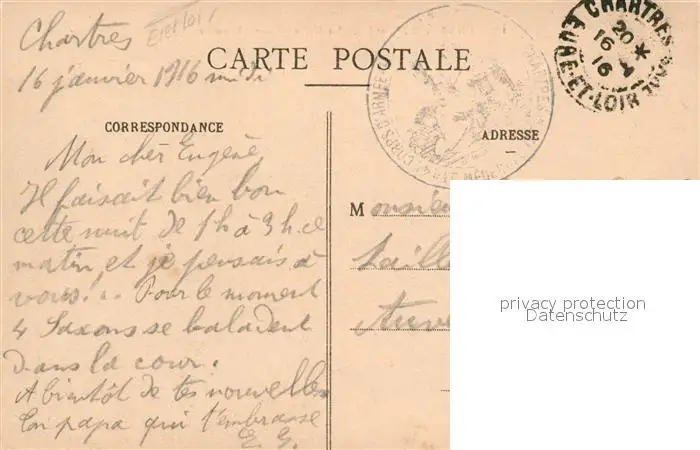 Chartres Eure et Loir
16 janvier 1916 midi
CARTE POSTALE
CORRESPONDANCE
Mon cher Eugène,
Il faisait bien bon
cette nuit de 1h à 3h ce
matin, et je pensais à
vous... Pour le moment
4 Saxons se baladent
dans la cour.
A bientôt de tes nouvelles
Ton papa qui t'embrasse
E. G.
4e CORPS D'ARMÉE
CHARTRES
CHARTRES
20
16 - 1
16
EURE-ET-LOIR
ADRESSE
Monsieur
Taill
Auve
privacy protection
Datenschutz